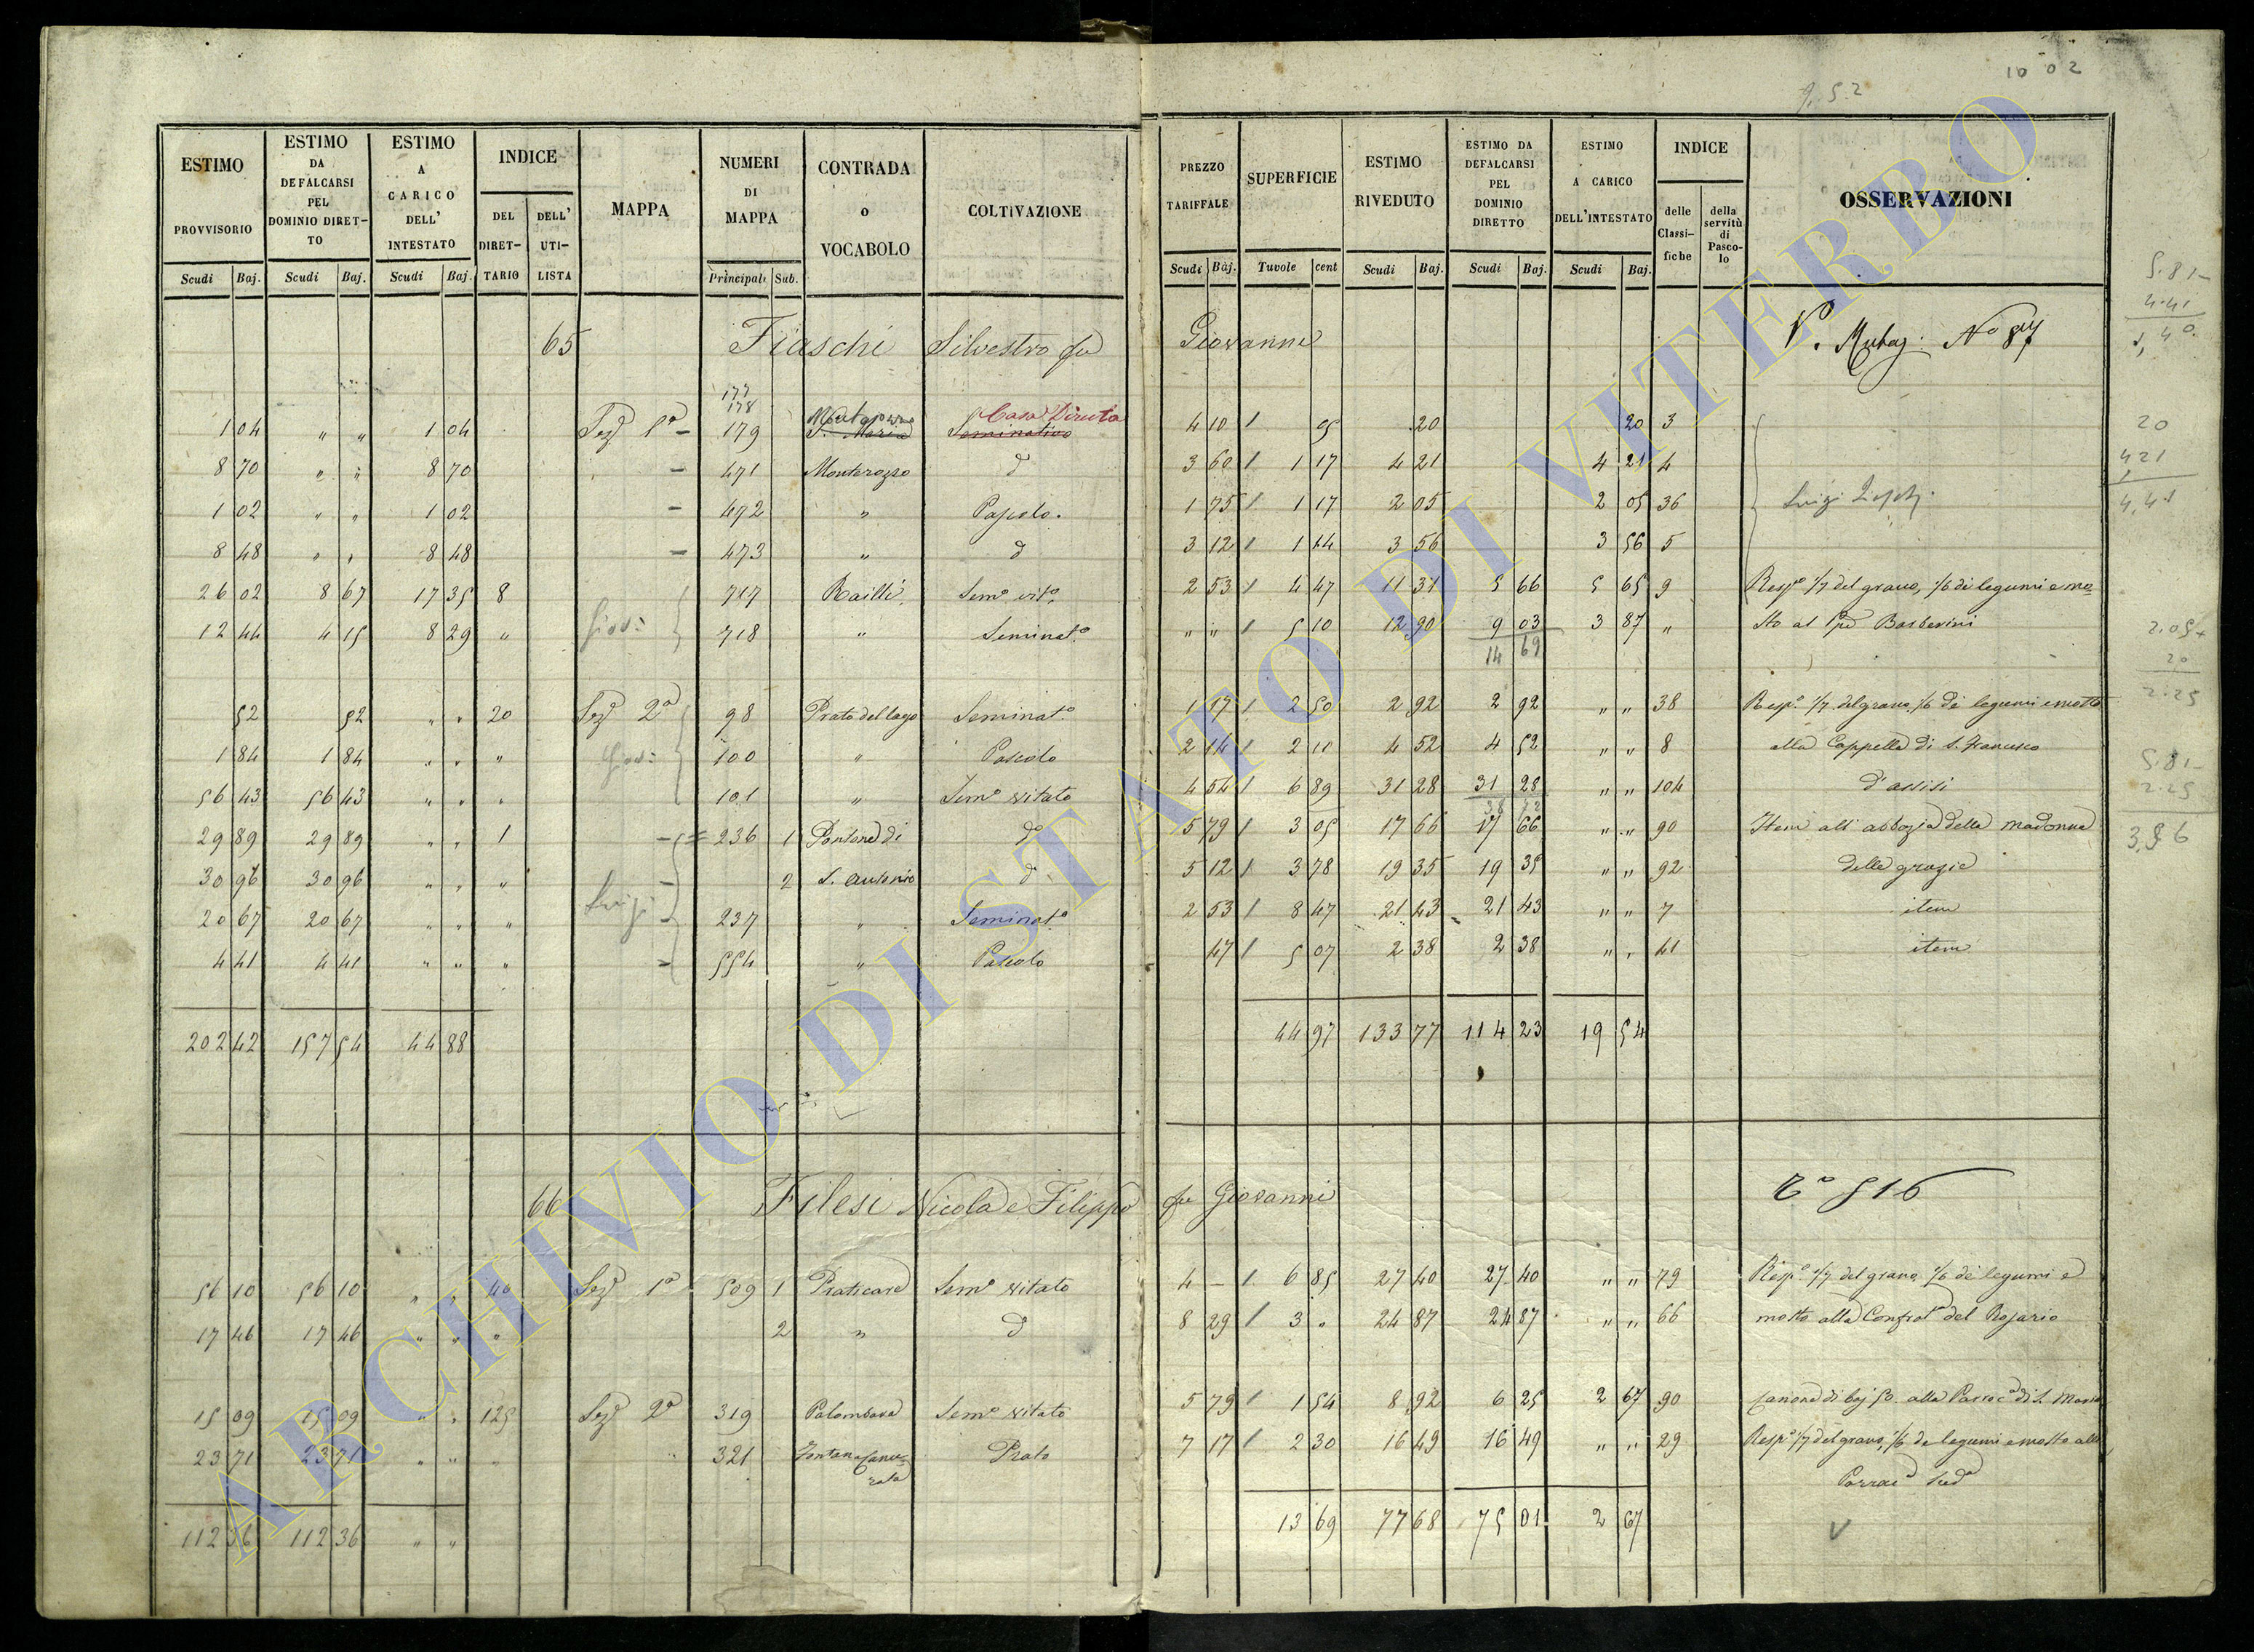 10 02
9.52
ESTIMO PROVVISORIO | ESTIMO DA DEFALCARSI PEL DOMINIO DIRETTO | ESTIMO A CARICO DELL' INTESTATO | INDICE | MAPPA | NUMERI DI MAPPA | CONTRADA o VOCABOLO | COLTIVAZIONE | PREZZO TARIFFALE | SUPERFICIE | ESTIMO RIVEDUTO | ESTIMO DA DEFALCARSI PEL DOMINIO DIRETTO | ESTIMO A CARICO DELL'INTESTATO | INDICE | OSSERVAZIONI
DEL DIRETTARIO | DELL' UTILISTA | delle Classifiche | della servitù di Pascolo
Scudi | Baj. | Scudi | Baj. | Scudi | Baj. | Principali | Sub. | Scudi | Baj. | Tavole | cent | Scudi | Baj. | Scudi | Baj. | Scudi | Baj.
65 Fiaschi Silvestro fu Giovanni V. N° 87
177
178
1 04 " " 1 04 Sez. 1a - 179 S. Maria Seminativo Casa Diruta 4 10 1 05 20 20 3
8 70 " " 8 70 - 471 Monterozzo d 3 60 1 1 17 4 21 4 21 4
1 02 " " 1 02 - 472 " Pascolo. 1 75 1 1 17 2 05 2 05 36 Luigi
8 48 " " 8 48 - 473 " d 3 12 1 1 14 3 56 3 56 5
26 02 8 67 17 35 8 Giov: 717 Railli Sem° vit° 2 53 1 4 47 11 31 5 66 5 65 9 Resp° 1/7 del grano, 1/6 di legumi e mo-
12 44 4 15 8 29 " 718 " Seminat° " " 1 5 10 12 90 9 03 3 87 " sto al Barberini
14 69
52 52 " " 20 Sez. 2a 98 Prato del lago Seminat° 1 17 1 2 50 2 92 2 92 " " 38 Resp° 1/7 del grano, 1/6 di legumi e mosto
1 84 1 84 " " " Giov: 100 " Pascolo 2 14 1 2 11 4 52 4 52 " " 8 alla Cappella di S. Francesco
56 43 56 43 " " " 101 " Sem° vitato 4 54 1 6 89 31 28 31 28 " " 104 d'assisi
38 72
29 89 29 89 " " 1 236 1 Pontone di d° 5 79 1 3 05 17 66 17 66 " " 90 Item all' abbazia della madonna
30 96 30 96 " " " 2 S. Antonio d 5 12 1 3 78 19 35 19 35 " " 92 delle grazie
20 67 20 67 " " " Luigi 237 " Seminat° 2 53 1 8 47 21 43 21 43 " " 7 item
4 41 4 41 " " " 554 " Pascolo 47 1 5 07 2 38 2 38 " " 41 item
202 42 157 54 44 88 44 97 133 77 114 23 19 54
66 Filesi Nicola e Filippo fu Giovanni 516
56 10 56 10 " " 40 Sez. 1a 509 1 Praticare Sem° vitato 4 - 1 6 85 27 40 27 40 " " 79 Resp° 1/7 del grano, 1/6 de legumi e
17 46 17 46 " " " 2 " d 8 29 1 3 " 24 87 24 87 " " 66 mosto alla Confrat. del Rosario
15 09 15 09 " " 125 Sez. 2a 319 Palombara Sem° vitato 5 79 1 1 54 8 92 6 25 2 67 90 Canone di baj 50 alla Parroc. di S. Maria
23 71 23 71 " " " 321 Fontana Prato 7 17 1 2 30 16 49 16 49 " " 29 Resp° 1/7 del grano, 1/6 de legumi e mosto alla
112 36 112 36 " " 13 69 77 68 75 01 2 67
5.81
4.41
1,40.
20
421
4,41
2.05
20
2.25
5.81
2.25
3,56
ARCHIVIO DI STATO DI VITERBO